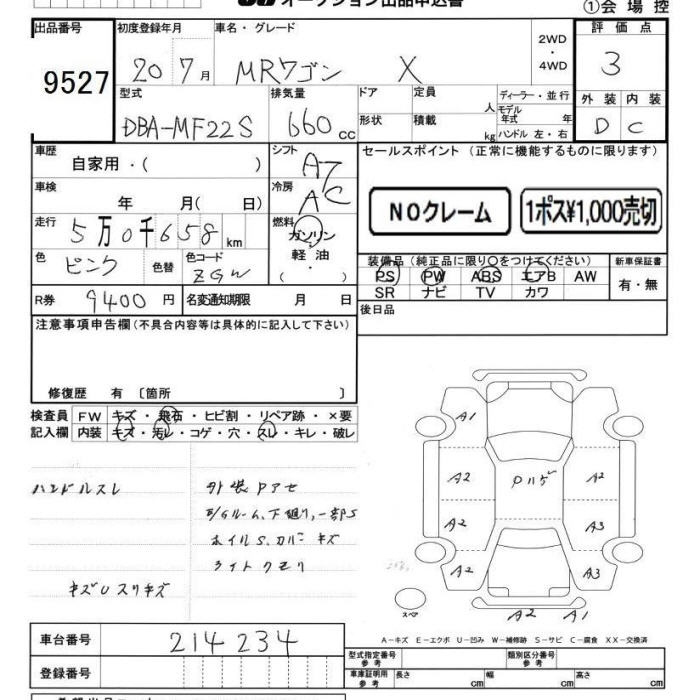 オークション出品申込書
①会場控
出品番号
9527
初度登録年月
20年7月
車名・グレード
MRワゴン X
2WD
・
4WD
評価点
3
外装 内装
D C
型式
DBA-MF22S
排気量
660cc
ドア
形状
定員 人
積載 kg
ディーラー・並行
モデル年式 年
ハンドル 左・右
車歴
自家用・( )
シフト
A7
冷房
AC
セールスポイント (正常に機能するものに限ります)
NOクレーム
1ポス¥1,000売切
車検
年 月( 日)
走行
5万0千658km
燃料
ガソリン
・
軽油
( )
色
ピンク
色替
色コード
ZGW
装備品(純正品に限り〇をつけてください)
PS PW ABS エアB AW
SR ナビ TV カワ
新車保証書
有・無
R券 9400円
名変通知期限 月 日
後日品
注意事項申告欄(不具合内容等は具体的に記入して下さい)
修復歴 有 〔箇所 〕
検査員記入欄
FW キズ・飛石・ヒビ割・リペア跡・×要
内装 キズ・汚レ・コゲ・穴・スレ・キレ・破レ
ハンドルスレ
外装Pアセ
下廻り、一部S
ホイルS、カバーキズ
ライトクモリ
キズUスリキズ
A1
A2
A2
A2
Pハゲ
A2
A3
A3
A2 A1
スペア
A−キズ E−エクボ U−凹み W−補修跡 S−サビ C−腐食 XX−交換済
車台番号
214234
登録番号
型式指定番号
参考
類別区分番号
参考
車庫証明用
参考
長さ cm
幅 cm
高さ cm